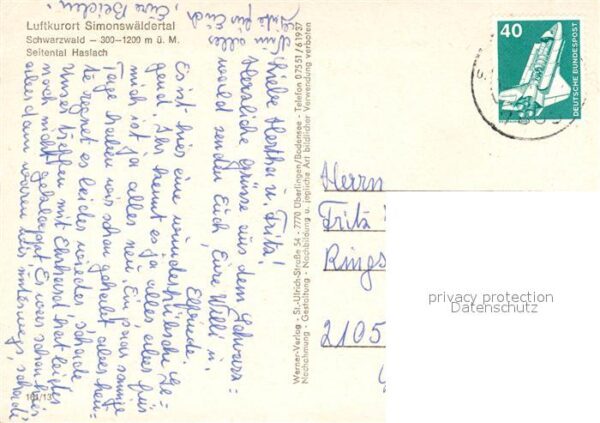 Luftkurort Simonswäldertal
Schwarzwald — 300–1200 m ü. M.
Seitental Haslach
Liebe Hertha u. Fritz!
Herzliche Grüsse aus dem Schwarz=
wald senden Euch, Eure Willi u.
Elfriede.
Es ist hier eine wunderhübsche Ge=
gend. Ihr kennt es ja alles, aber für
mich ist ja alles neu. Ein paar sonnige
Tage haben wir schon gehabt aber heu=
te regnet es leider wieder, schade
Unser Treffen mit Ehrhard hat leider
noch nicht geklappt. Er war schon hier
aber dann waren wir unterwegs, schade
Nun alles
Gute für Euch
Eure Beiden.
164/13
Werner-Verlag - St.-Ulrich-Straße 54 - 7770 Überlingen/Bodensee - Telefon 07551/61937
Nachahmung - Gestaltung - Nachbildung u. jegliche Art bildlicher Verwendung verboten
40
DEUTSCHE BUNDESPOST
Herrn
Fritz
Rings
2105
privacy protection
Datenschutz